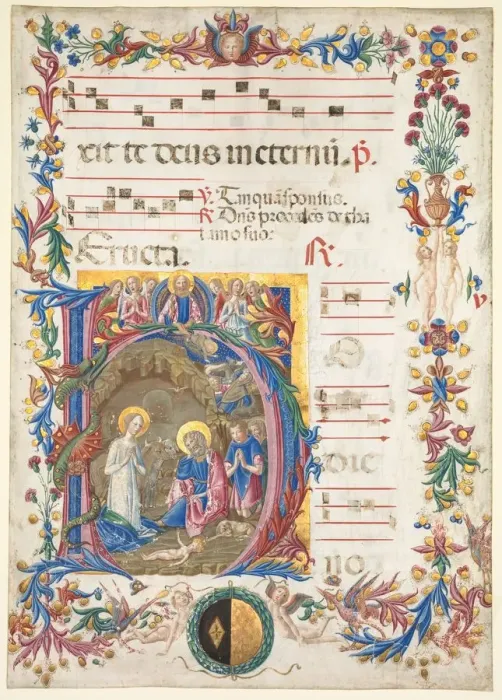 xit te deus in eternũ. p̃.
℣. Tanquã sponsus.
℟. Dñs procedẽs de tha
lamo suo.
Eructa. R.
H
O
DIE
NO